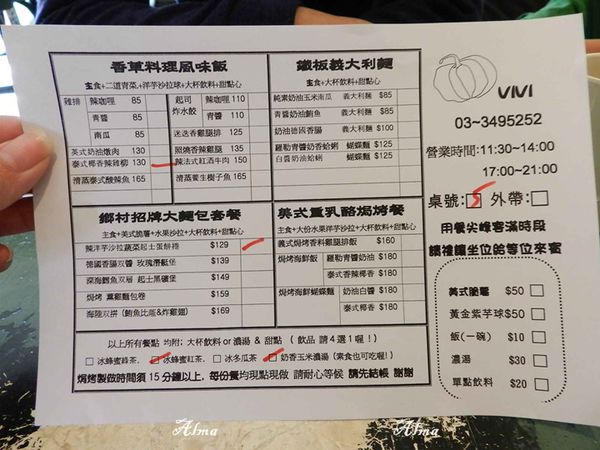 香草料理風味飯
主食+二道青菜,+洋芋沙拉球+大杯飲料+甜點心
雞排 辣咖哩 85
青醬 85
南瓜 85
英式奶油燉肉 130
泰式椰香辣雞柳 130
清蒸泰式酸辣魚 165
起司炸水餃 辣咖哩 110
青醬 110
迷迭香雞腿排 125
照燒香辣雞腿 135
辣法式紅酒牛肉 150
清蒸養生樹子魚 165
鐵板義大利麵
主食+大杯飲料+甜點心
純素奶油玉米南瓜 義大利麵 $85
青醬奶油鮪魚 義大利麵 $85
奶油德國香腸 義大利麵 $100
羅勒青醬奶香蛤蜊 蝴蝶麵 $125
白醬奶油蛤蜊 蝴蝶麵 $125
鄉村招牌大麵包套餐
主食+美式脆薯+水果沙拉+大杯飲料+甜點心
辣洋芋沙拉蔬菜起士蛋餅捲 $129
德國香腸双醬 玫瑰潛艇堡 $139
深海鱈魚双層 起士黑礦堡 $149
焗烤 燻雞麵包卷 $159
海陸双拼(鮪魚比薩&炸雞翅) $169
美式重乳酪焗烤餐
主食+大份水果洋芋沙拉+大杯飲料+甜點心
義式焗烤香料雞腿排飯 $160
焗烤海鮮飯 羅勒青醬奶油 $180
泰式香辣椰香 $180
焗烤海鮮蝴蝶麵 奶油白醬 $180
泰式椰香 $180
以上所有餐點 均附: 大杯飲料 or 濃湯 & 甜點 ( 飲品 請 4 選 1 喔! )
□冰蜂蜜綠茶. □冰蜂蜜紅茶. □冰冬瓜茶 □奶香玉米濃湯 (素食也可吃喔! )
焗烤製做時間須 15 分鐘以上, 每份餐均現點現做 請耐心等候 請先結帳 謝謝
VIVI
03~3495252
營業時間:11:30~14:00
17:00~21:00
桌號:□5 外帶:□
用餐尖峰客滿時段
請禮讓坐位給等位來賓
美式脆薯 $50 □
黃金紫芋球$50 □
飯(一碗) $10 □
濃湯 $30 □
單點飲料 $20 □
Alma
Alma